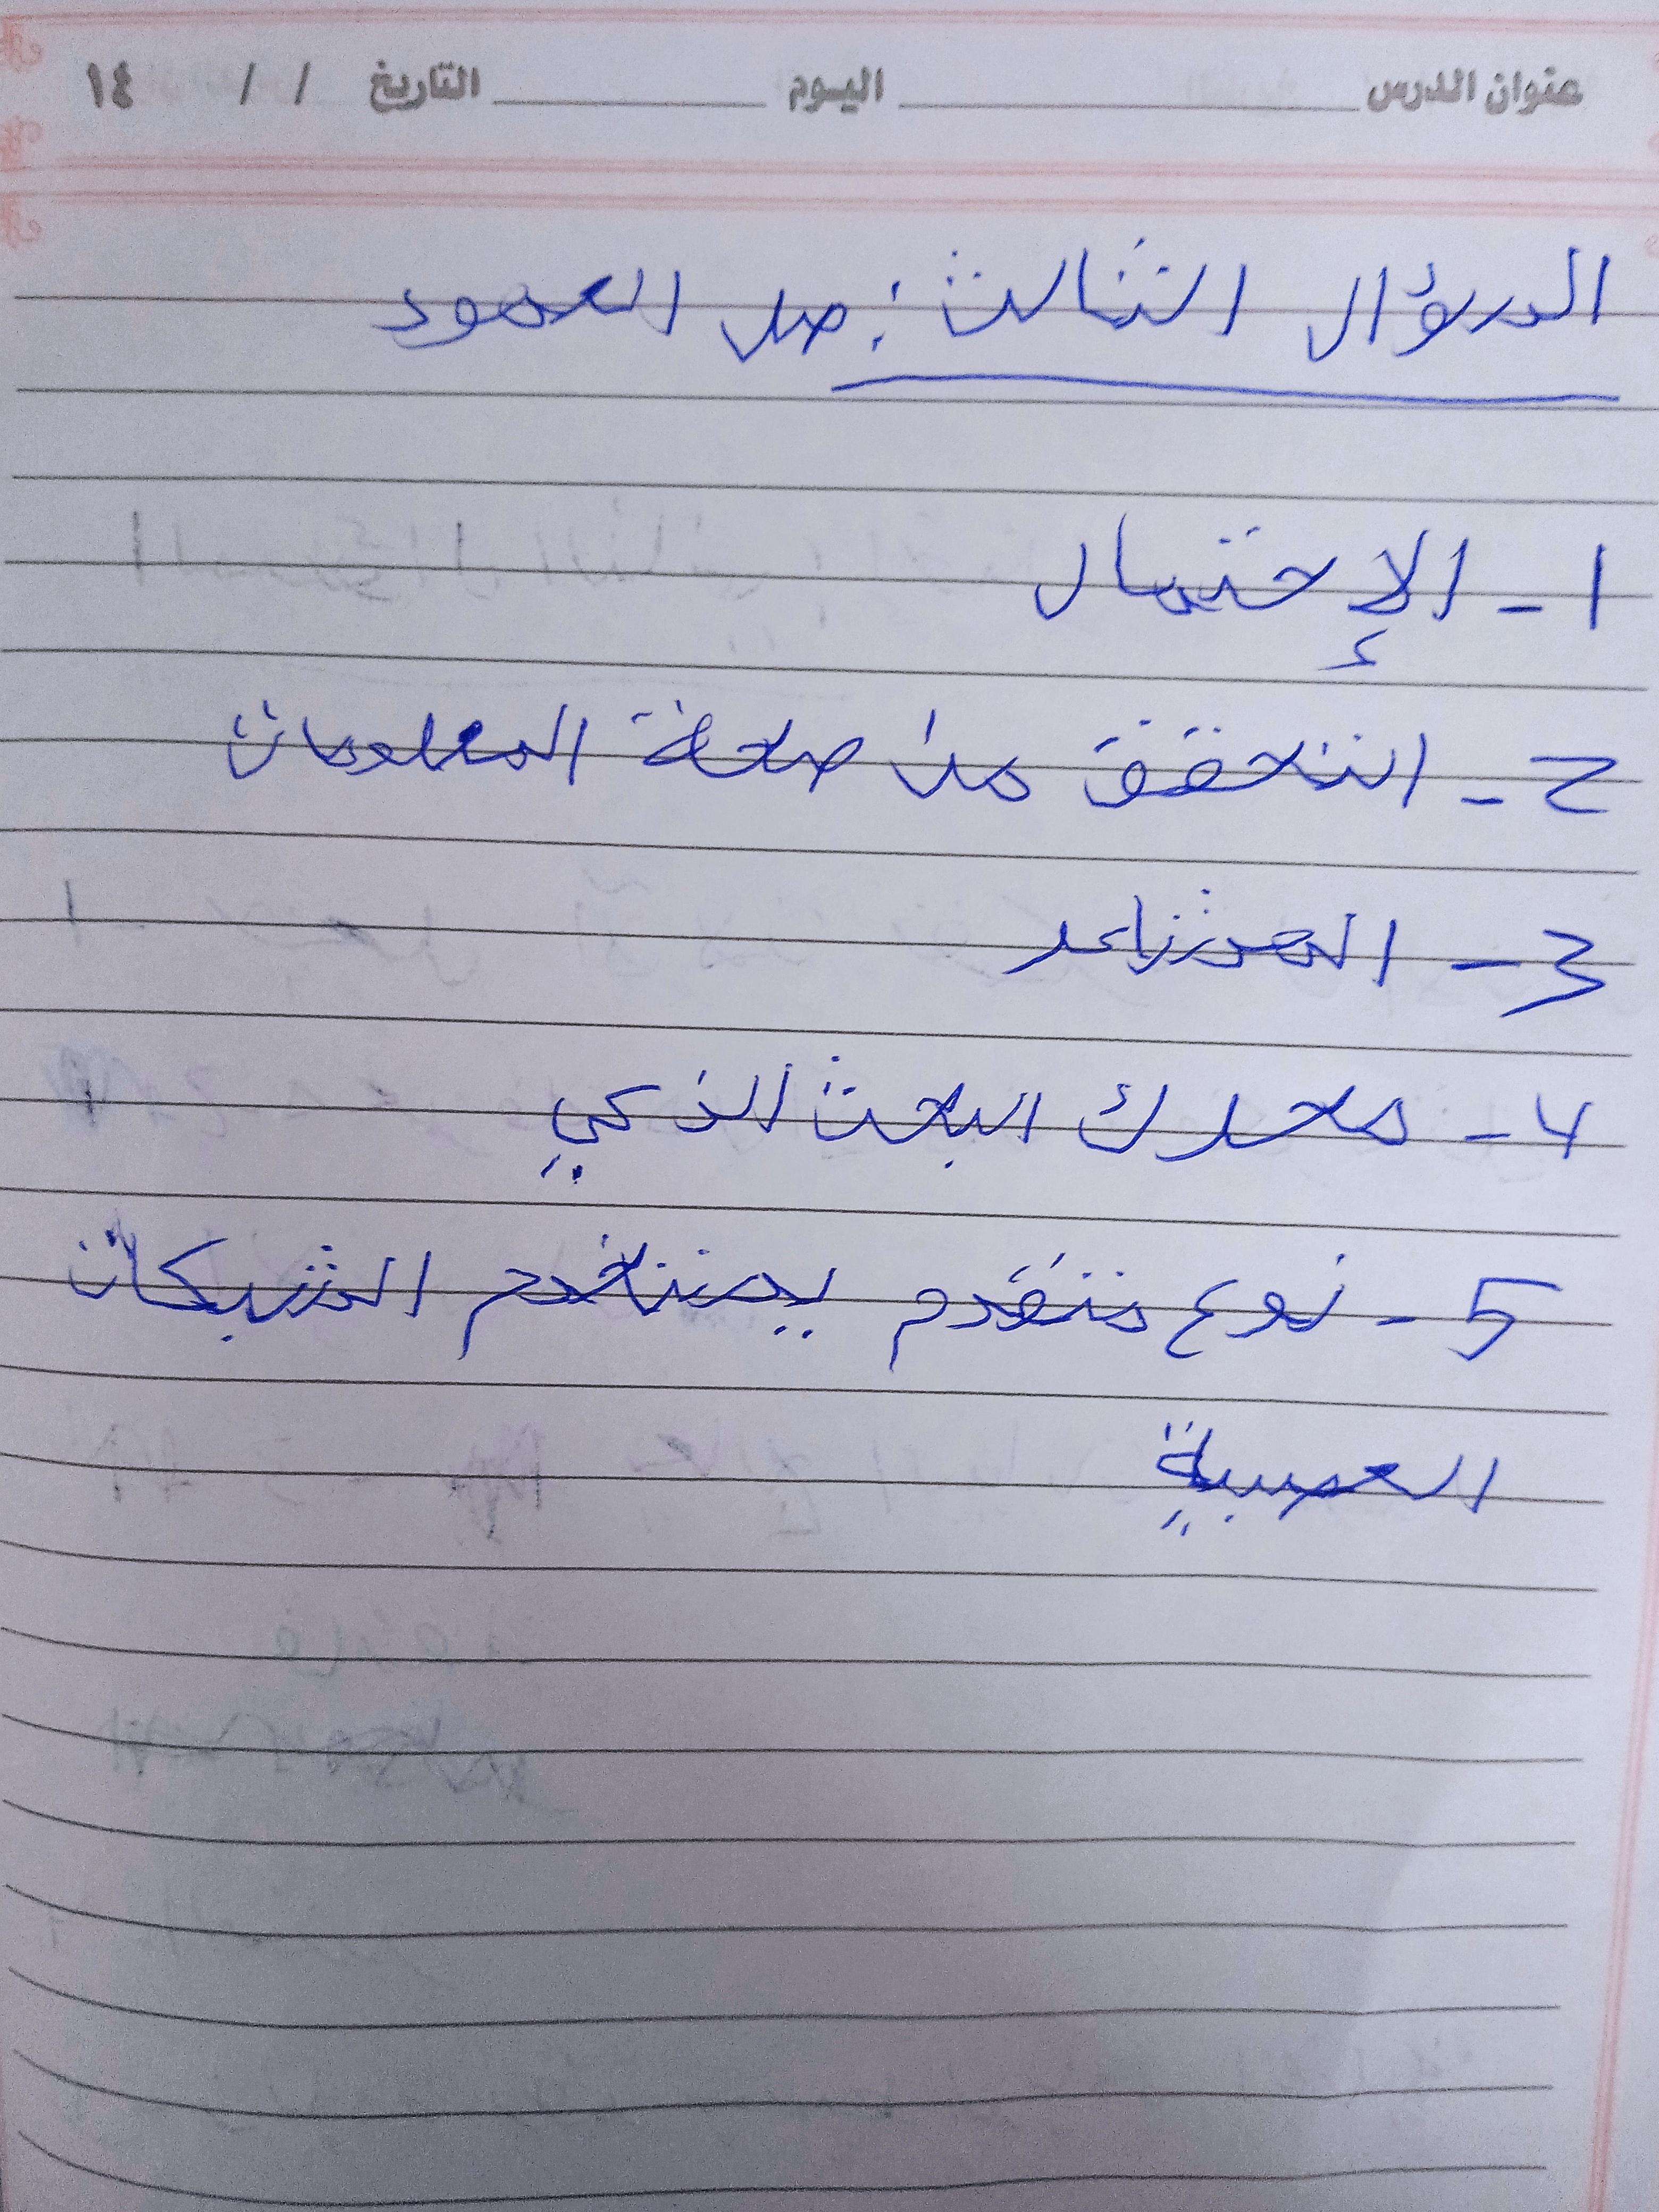 عنوان الدرس اليوم التاريخ / / ١٤
السؤال الثالث : صل العمود
1 - الإحتمال
2 - التحقق من صحة المعلومات
3 - المشاعر
4 - محرك البحث الذكي
5 - نوع متقدم يستخدم الشبكات
العصبية